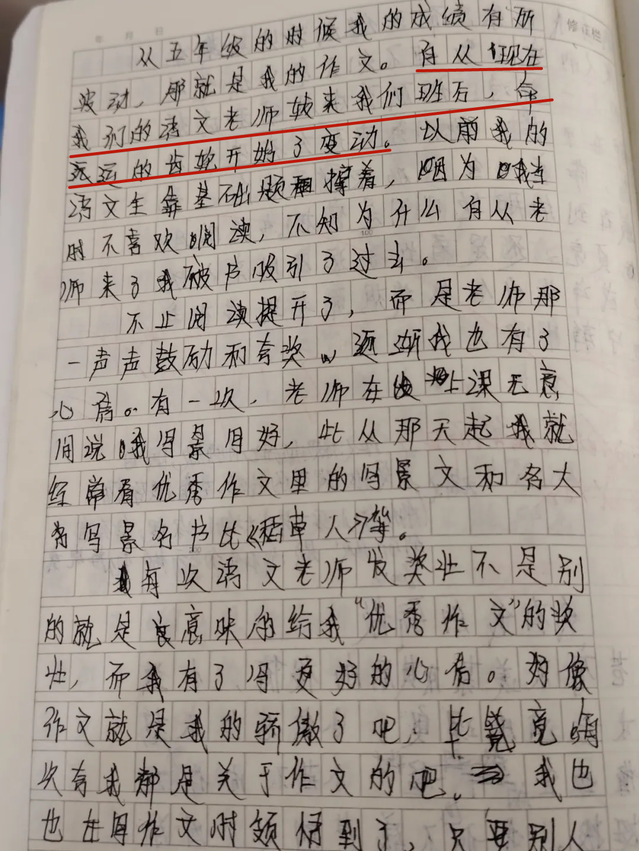 年 月 日
修正栏
从五年级的时候我的成绩有所
波动，那就是我的作文。自从现在
我们的语文老师转来我们班后，命
运的齿轮开始了变动。以前我的
语文全靠基础题撑着，因为我
时不喜欢阅读，不知为什么自从老
师来了我被书吸引了过去。
不止阅读提升了，而是老师那
一声声鼓励和夸奖。逐渐我也有了
心育。有一次，老师在上课无意
间说我写景写好，此从那天起我就
经常看优秀作文里的写景文和名大
写景名书比《稻草人》等。
每次语文老师发奖状不是别
的就是意的给我“优秀作文”的奖
状，而我有了写更好的心。好像
作文就是我的骄傲了吧，毕竟
次有我都是关于作文的吧。我也
也在写作文时领悟到了，只要别人